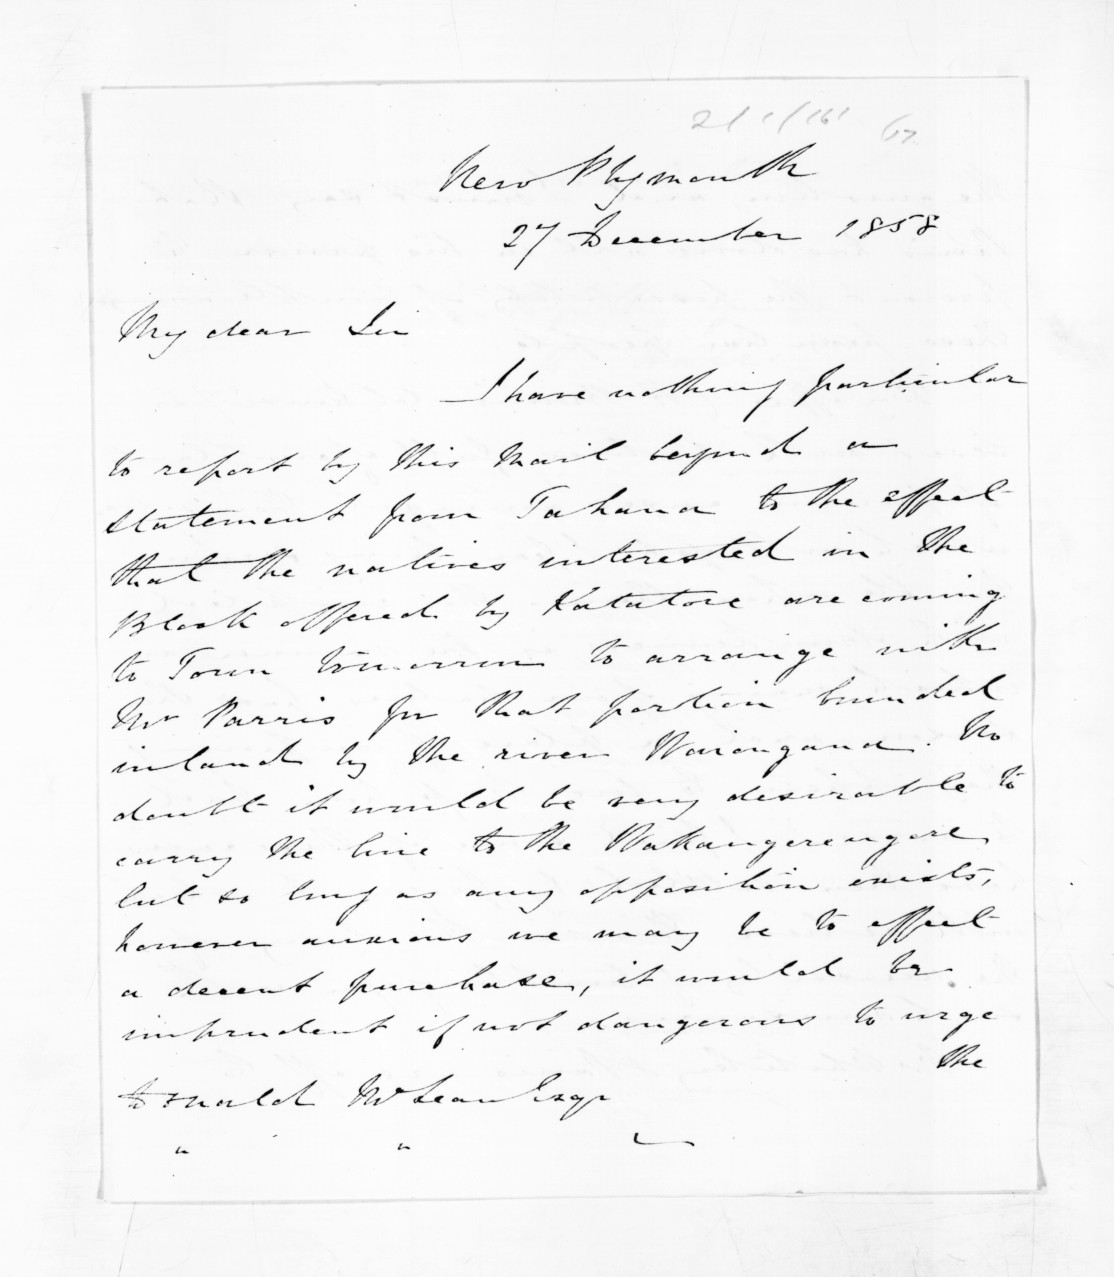 New Plymouth
27 December 1858
My dear Sir
I have nothing particular
to report by this Mail beyond a
statement from Tahana to the effect
that the natives interested in the
Block offered by Katatore are coming
to Town tomorrow to arrange with
Mr Parris for that portion bounded
inland by the river Waiongana. No
doubt it would be very desirable to
carry the line to the
but so long as any opposition exists,
however anxious we may be to effect
a decent purchase, it would be
imprudent if not dangerous to urge
the
Donald McLean Esqr
" "